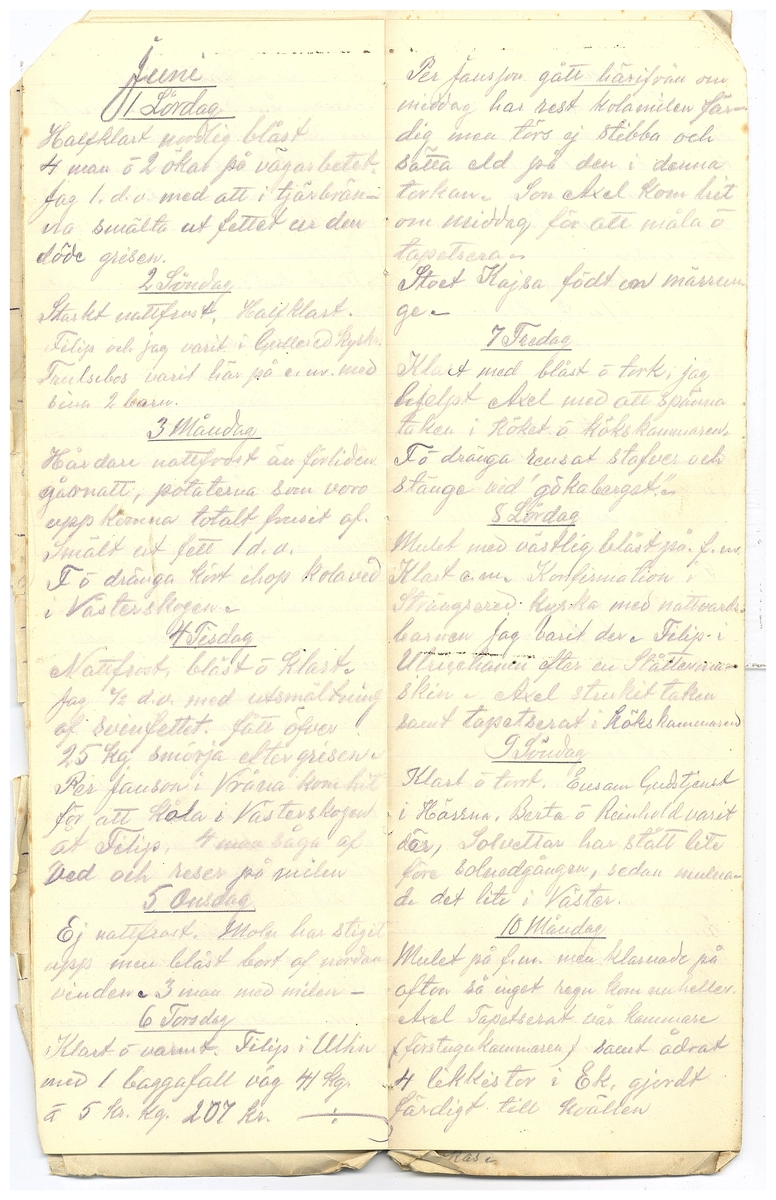 Juni
1 Lördag
Halfklart nordlig blåst
4 man ö 2 okar på vägarbetet.
Jag 1. d.v. med att i tjärbrän-
na smälta ut fettet ur den
döde grisen.
2 Söndag
Starkt nattfrost. Halfklart.
Filip och jag varit i Gullered kyrk.
Trulsebos varit här på e.m. med
sina 2 barn.
3 Måndag
Hårdare nattfrost än förliden
gåsnatt, potaterna som voro
uppkomna totalt frusit af.
Smält ut fett 1 d.v.
F ö dränga kört ihop kolaved
i Västerskogen.
4 Tisdag
Nattfrost, blåst ö klart.
Jag ½ d.v. med utsmältning
af svinfettet. fått öfver
25 kg smörja efter grisen.
Per Janson i Vråna kom hit
för att kola i Västerskogen
åt Filip. 4 man såga af
Ved och reser på milen
5 Onsdag
Ej nattfrost. Moln har stigit
upp men blåst bort af nordan
vinden. 3 man med milen -
6 Torsdag
Klart ö varmt. Filip i Ulhn
med 1 baggafall väg 41 kg.
à 5 kr. kg. 207 kr.
Per Jansson gått härifrån om
middag har rest kolamilen fär-
dig men törs ej stibba och
sätta eld på den i denna
torkan. Son Axel kom hit
om middag för att måla ö
tapetsera.
Stoet Kajsa födt en märrun
ge.
7 Fredag
Klart med blåst ö tork, jag
hjelpt Axel med att spänna
taken i köket ö kökskammaren.
F ö dränga rensat stafver och
stänge vid "gökaberget".
8 Lördag
Mulet med västlig blåst på f.m.
Klart e.m. Konfirmation i
Strängsered kyrka med nattvards-
barnen jag varit der. Filip i
Ulricehamn efter en Slåttermа-
skin. Axel strukit taken
samt tapetserat i Kökskammaren
9 Söndag
Klart ö tort. Ensam Gudstjenst
i Hössna. Berta ö Reinhold varit
där, Solvettrar har stått lite
före solnedgången, sedan mulna-
de det lite i Väster.
10 Måndag
Mulet på f.m. men klarnade på
afton så inget regn kom nu heller.
Axel Tapetserat vår kammare
(förstugukammaren) samt ådrat
4 likkistor i Ek, gjordt
färdigt till kvällen